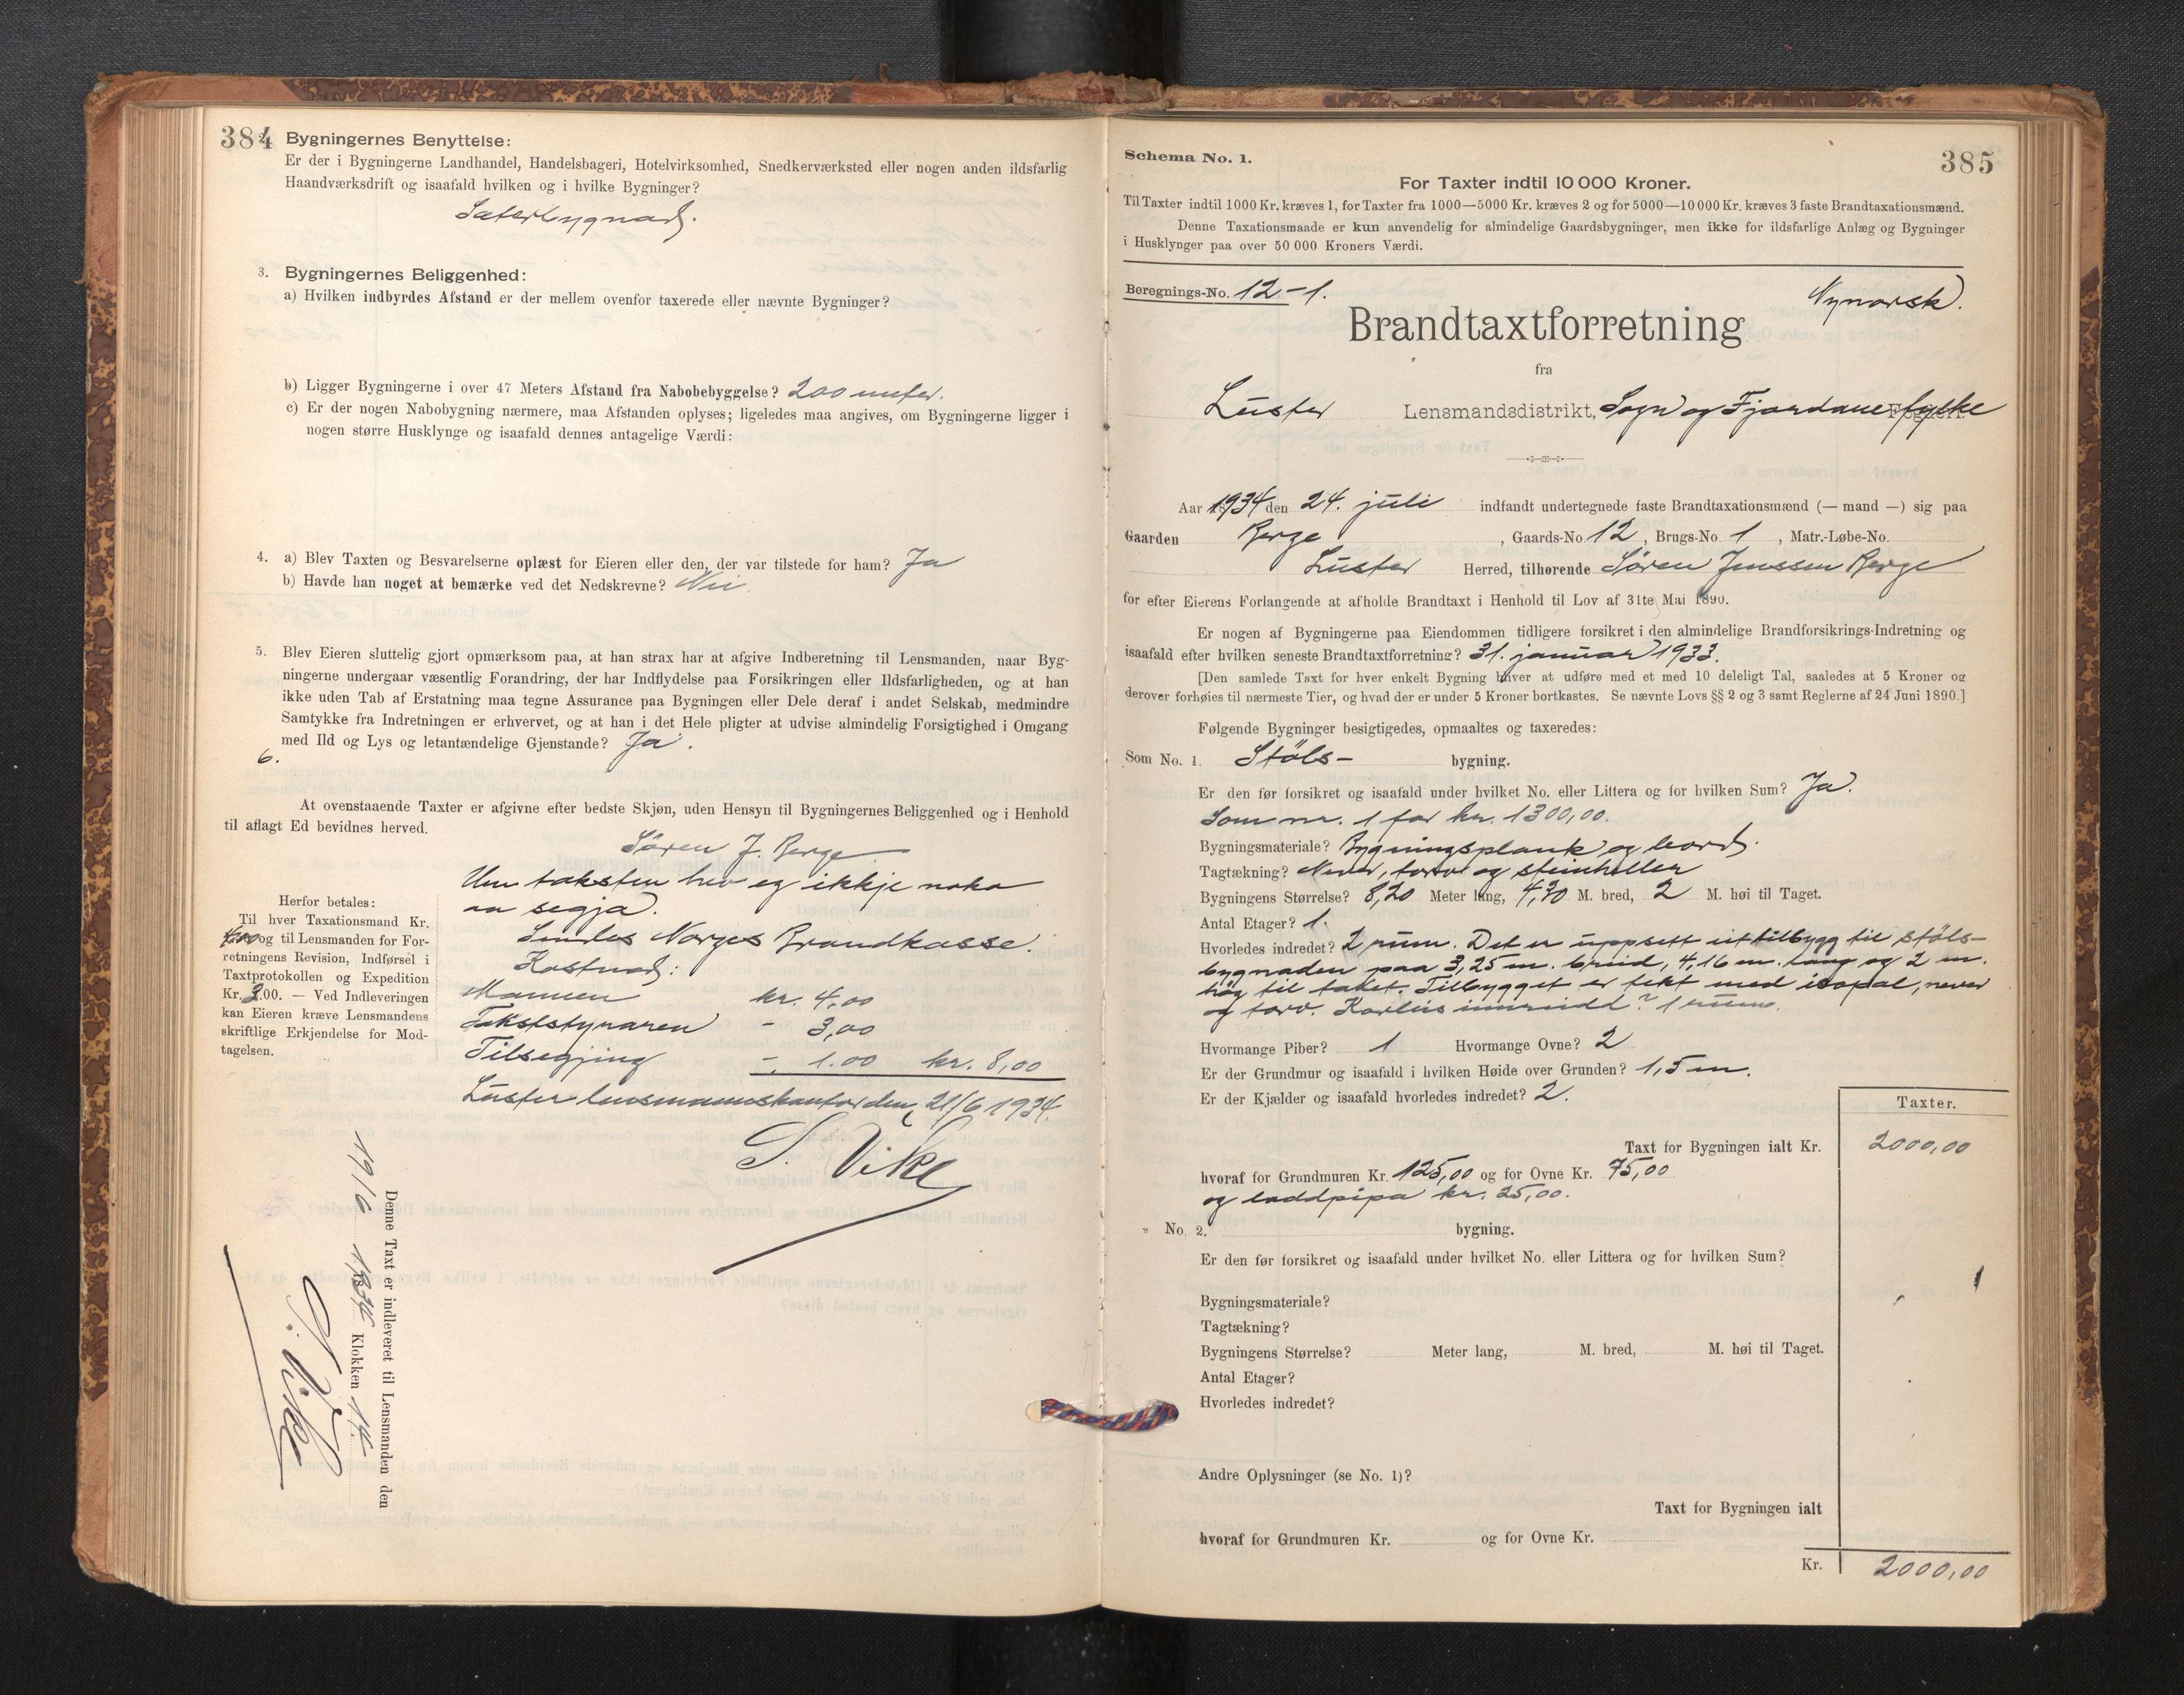 384
Bygningernes Benyttelse:
Er der i Bygningerne Landhandel, Handelsbageri, Hotelvirksomhed, Snedkerværksted eller nogen anden ildsfarlig
Haandværksdrift og isaafald hvilken og i hvilke Bygninger?
Sæterbygnad.
3. Bygningernes Beliggenhed:
a) Hvilken indbyrdes Afstand er der mellem ovenfor taxerede eller nævnte Bygninger?
b) Ligger Bygningerne i over 47 Meters Afstand fra Nabobebyggelse? 200 meter.
c) Er der nogen Nabobygning nærmere, maa Afstanden oplyses; ligeledes maa angives, om Bygningerne ligger i
nogen større Husklynge og isaafald dennes antagelige Værdi:
4. a) Blev Taxten og Besvarelserne oplæst for Eieren eller den, der var tilstede for ham? Ja
b) Havde han noget at bemærke ved det Nedskrevne? Nei.
5. Blev Eieren sluttelig gjort opmærksom paa, at han strax har at afgive Indberetning til Lensmanden, naar Byg-
ningerne undergaar væsentlig Forandring, der har Indflydelse paa Forsikringen eller Ildsfarligheden, og at han
ikke uden Tab af Erstatning maa tegne Assurance paa Bygningen eller Dele deraf i andet Selskab, medmindre
Samtykke fra Indretningen er erhvervet, og at han i det Hele pligter at udvise almindelig Forsigtighed i Omgang
med Ild og Lys og letantændelige Gjenstande? Ja.
6.
At ovenstaaende Taxter er afgivne efter bedste Skjøn, uden Hensyn til Bygningernes Beliggenhed og i Henhold
til aflagt Ed bevidnes herved.
Søren J. Berge
Um taksten hev eg ikkje noko
aa segja.
Sendes Norges Brandkasse.
Kostnad:
Mannen kr. 4,00
Takststyraren - 3,00
Tilsegjing - 1.00 kr. 8,00
Luster lensmannskontor den 21/6 1934.
S. Vike
Herfor betales:
Til hver Taxationsmand Kr.
4.00 og til Lensmanden for For-
retningens Revision, Indførsel i
Taxtprotokollen og Expedition
Kr. 3.00. — Ved Indleveringen
kan Eieren kræve Lensmandens
skriftlige Erkjendelse for Mod-
tagelsen.
Denne Taxt er indleveret til Lensmanden den
19/6 1934 Klokken 14
S. Vike
385
Schema No. 1.
For Taxter indtil 10 000 Kroner.
Til Taxter indtil 1000 Kr. kræves 1, for Taxter fra 1000—5000 Kr. kræves 2 og for 5000—10 000 Kr. kræves 3 faste Brandtaxationsmænd.
Denne Taxationsmaade er kun anvendelig for almindelige Gaardsbygninger, men ikke for ildsfarlige Anlæg og Bygninger
i Husklynger paa over 50 000 Kroners Værdi.
Beregnings-No. 12-1.
Nynorsk.
Brandtaxtforretning
fra
Luster Lensmandsdistrikt, Sogn og Fjordane fylke Fogderi.
Aar 1934 den 24. juli indfandt undertegnede faste Brandtaxationsmænd (— mand —) sig paa
Gaarden Berge, Gaards-No. 12, Brugs-No. 1, Matr.-Løbe-No.
Luster Herred, tilhørende Søren Jenssen Berge
for efter Eierens Forlangende at afholde Brandtaxt i Henhold til Lov af 31te Mai 1890.
Er nogen af Bygningerne paa Eiendommen tidligere forsikret i den almindelige Brandforsikrings-Indretning og
isaafald efter hvilken seneste Brandtaxtforretning? 31. januar 1933.
[Den samlede Taxt for hver enkelt Bygning bliver at udføre med et med 10 deleligt Tal, saaledes at 5 Kroner og
derover forhøies til nærmeste Tier, og hvad der er under 5 Kroner bortkastes. Se nævnte Lovs §§ 2 og 3 samt Reglerne af 24 Juni 1890.]
Følgende Bygninger besigtigedes, opmaaltes og taxeredes:
Som No. 1. Stöls- bygning.
Er den før forsikret og isaafald under hvilket No. eller Littera og for hvilken Sum? Ja.
Som nr. 1 for kr. 1300,00.
Bygningsmateriale? Bygningsplank og bord.
Tagtækning? Never, torv og steinheller
Bygningens Størrelse? 8,20 Meter lang, 4,30 M. bred, 2 M. høi til Taget.
Antal Etager? 1.
Hvorledes indredet? 2 rum. Det er uppsett eit tilbygg til stöls-
bygnaden paa 3,25 m. breid, 4,16 m. lang og 2 m.
hög til taket. Tilbygget er tekt med isopal, never
og torv. Korleis innreidd? 1 rum.
Hvormange Piber? 1 Hvormange Ovne? 2
Er der Grundmur og isaafald i hvilken Høide over Grunden? 1,5 m.
Er der Kjælder og isaafald hvorledes indredet? 2.
Taxter.
Taxt for Bygningen ialt Kr. 2000,00
hvoraf for Grundmuren Kr. 125,00 og for Ovne Kr. 75,00
og loddpipa kr. 25,00.
" No. 2. bygning.
Er den før forsikret og isaafald under hvilket No. eller Littera og for hvilken Sum?
Bygningsmateriale?
Tagtækning?
Bygningens Størrelse? Meter lang, M. bred, M. høi til Taget.
Antal Etager?
Hvorledes indredet?
Andre Oplysninger (se No. 1)?
Taxt for Bygningen ialt
hvoraf for Grundmuren Kr. og for Ovne Kr.
Kr. 2000,00